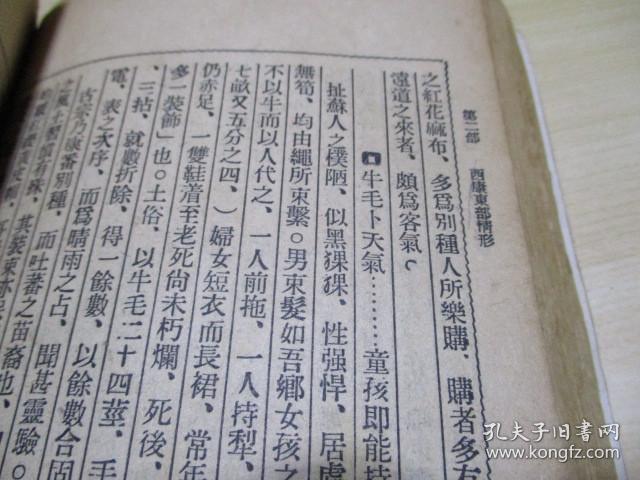 第二部　西康東部情形
之紅花麻布、多爲別種人所樂購、購者多有
遠道之來者、頗爲客氣。
牛毛卜天氣………童孩即能持
扯蘇人之樸陋、似黑猓猓、性强悍、居處
無筍、均由繩所束繫。男束髮如吾鄉女孩之
不以牛而以人代之、一人前拖、一人持犁、
七畝又五分之四、）婦女短衣而長裙、常年
仍赤足、一雙鞋着至老死尙未朽爛、死後、
多一裝飾」也。土俗、以牛毛二十四莖、手
、三拈、就數折除、得一餘數、以餘數合固
電、表之次序、而爲晴雨之占、聞甚靈驗。
古宗乃康番別種、而吐蕃之苗裔也、
之風土習慣有殊、其裝束亦
孔夫子旧書网
www.kongfz.com